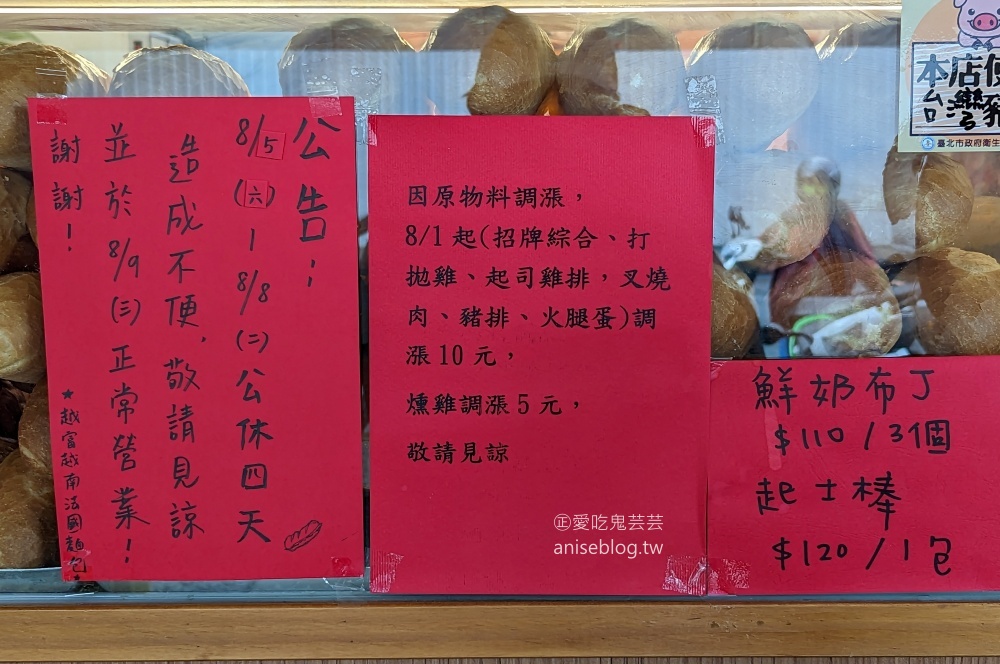 公告：
8/5(六)-8/8(二)公休四天
造成不便，敬請見諒
並於8/9(三)正常營業！
謝謝！
★越富越南法國麵包★
因原物料調漲，
8/1起(招牌綜合、打
拋雞、起司雞排，叉燒
肉、豬排、火腿蛋)調
漲10元，
燻雞調漲5元，
敬請見諒
正愛吃鬼芸芸
aniseblog.tw
鮮奶布丁
$110/3個
起士棒
$120/1包
本店使
台灣豬
臺北市政府衛生